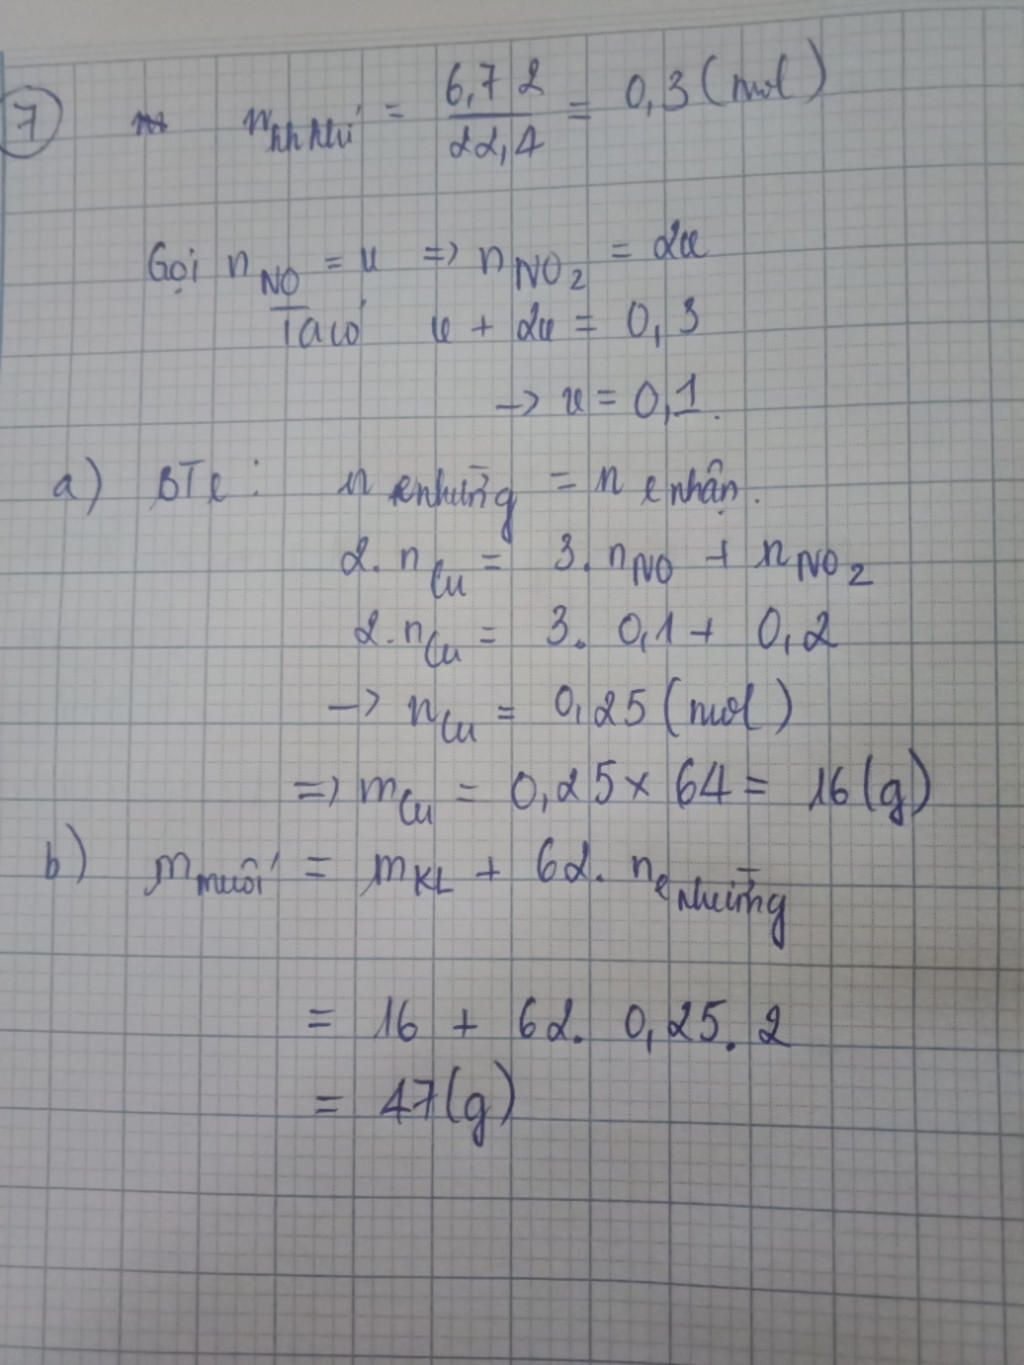 7 n hh khí = 6,72 / 22,4 = 0,3 (mol)
Gọi n NO = x => n NO2 = 2x
Ta có x + 2x = 0,3
-> x = 0,1.
a) BTe: n e nhường = n e nhận.
2. n Cu = 3. n NO + n NO2
2. n Cu = 3. 0,1 + 0,2
-> n Cu = 0,25 (mol)
=> m Cu = 0,25 x 64 = 16 (g)
b) m muối = m KL + 62. n e nhường
= 16 + 62. 0,25. 2
= 47 (g)